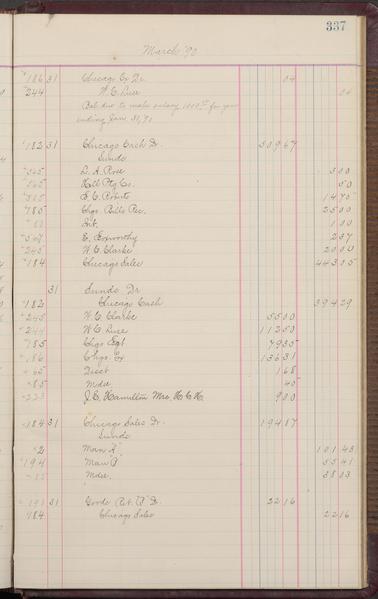 337
March '90
186 31 Chicago Ex Dr. 04
244 W. C. Luce 04
Bal due to make salary for year
ending Jan. 31, 90
182 31 Chicago Cash Dr. 50967
Sunds
L. A. Rose 300
Hill Ptg Co. 50
F. C. Roberts 1475
785 Chgo. Bills Rec. 2500
Int. 100
E. Foxworthy 237
245 W. C. Clarke 2000
184 Chicago Sales 44305
31 Sunds Dr
182 Chicago Cash 39429
245 W. C. Clarke 5500
244 W. C. Luce 11250
785 Chgo Egt 7935
186 Chgo. Ex 13631
65 Disct 168
85 Mdse 45
223 J. C. Hamilton Mrs. H C H. 900
184 31 Chicago Sales Dr. 19487
Sunds
2 Man'f'g 10143
194 Man'f'g 5541
Mdse. 3803
193 31 Goods Ret. Dr. 2216
184 Chicago Sales 2216